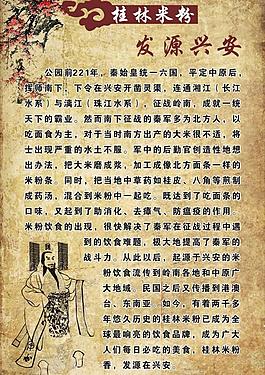 桂林米粉
发源兴安
公园前221年，秦始皇统一六国，平定中原后，
挥师南下，下令在兴安开凿灵渠，连通湘江（长江
水系）与漓江（珠江水系），征战岭南，成就一统
天下的霸业。然而南下征战的秦军多为北方人，以
吃面食为主，对于当时南方出产的大米很不适，将
士出现严重的水土不服。军中的后勤官创造性地想
出办法，把大米磨成浆，加工成像北方面条一样的
米粉条。同时，把当地中草药如桂皮、八角等煎制
成药汤，混合到米粉中一起吃。既达到了吃面条的
口味，又起到了助消化、去瘴气、防瘟疫的作用。
米粉饮食的出现，很快解决了秦军在征战过程中遇
到的饮食难题，极大地提高了秦军的
战斗力。从此以后，起源于兴安的米
粉饮食流传到岭南各地和中原广
大地域。民国之后又传播到港澳
台、东南亚。如今，有着两千多
年悠久历史的桂林米粉已成为全
球最响亮的饮食品牌，成为广大
人们每日必吃的美食。桂林米粉
香，发源在兴安